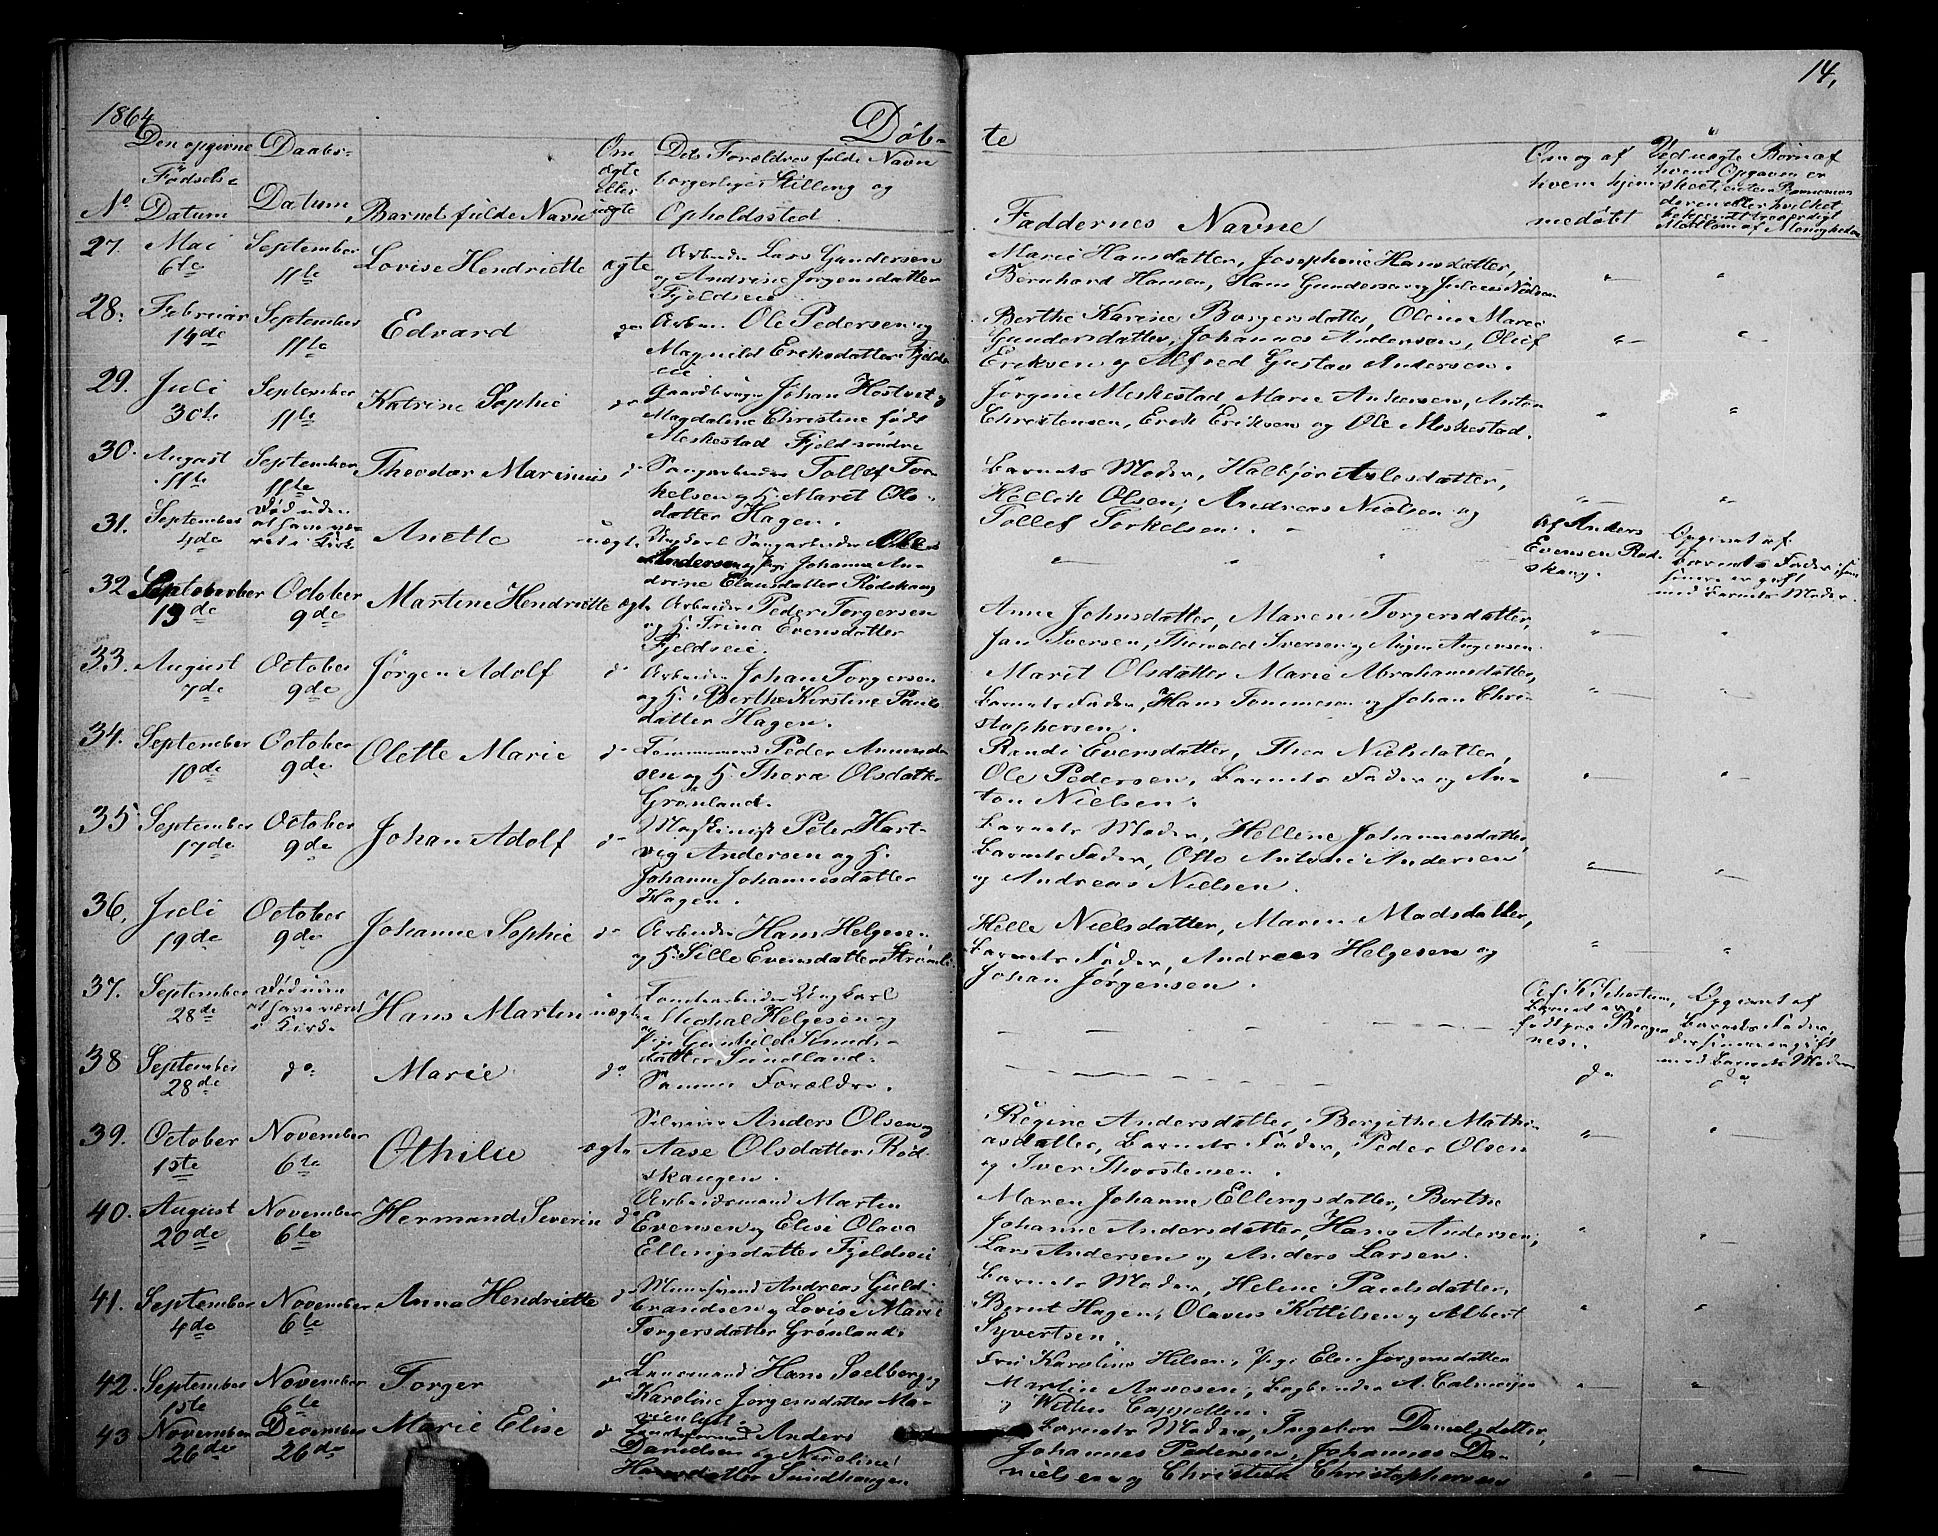 1864
14,
Døb-
te
Den opgivne
Fødsels-
Datum
Daabs-
Datum
No
Barnets fulde Navn
Om
ægte
eller
uægte
Dets Forældres fulde Navn
borgerlige Stilling og
Opholdssted
Faddernes Navne
Om og af
hvem hjem-
medøbt
Ved uægte Børn af
hvem Opgaven er
27
Mai
6te
September
11te
Lovise Hendriette
ægte
Arbeider Lars Gundersen
og Andrine Jørgensdatter
Fjeldseie
Marie Hansdatter, Josephine Hansdatter,
Bernhard Hansen, Hans Gundersen og Julius Nilsen
28.
Februar
14de
September
11te
Edvard
do
Arbm. Ole Pedersen og
Magnild Eriksdatter Fjelds-
eie
Berthe Karine Borgersdatter, Oline Marie
Gundersdatter, Johannes Andersen, Oluf
Eriksen og Alfred Gustav Andersen.
29.
Juli
30te
September
11te
Katrine Sophie
do
Gaardbruger Johan Hostvet og
Magdaline Christine født
Meskestad Fjeld søndre
Jørgine Meskestad, Marie Andersen, Anton
Christensen, Erik Eriksen og Ole Meskestad.
30.
August
11te
September
11te
Theodor Marinius
do
Saugarbeider Tollef Tor-
kelsen og H. Maret Ols-
datter Hagen.
Barnets Moder, Halbjør Aslesdatter,
Kittil Olsen, Andreas Nielsen og
Tollef Torkelsen.
31.
September
4de
Død uden
at have væ-
ret i Kirke
Anette
uægte
Ungkarl Saugarbeider Ole
Andersen og Pige Johanne An-
drine Clausdatter Rødskaug
Af Anders
Evensen Rød-
skaug.
Opgivet af
Barnets Fader, som
senere er gift
med Barnets Moder.
32
September
13de
October
9de
Martine Hendriette
ægte
Arbeider Peder Torgersen
og H. Trina Evensdatter
Fjeldseie.
Anne Johnsdatter, Maren Torgersdatter,
Jan Iversen, Thorvald Iversen og Augen Augensen.
33.
August
7de
October
9de
Jørgen Adolf
do
Arbeider Johan Torgersen
og H. Berthe Kirstine Pauls-
datter Hagen.
Marit Olsdatter, Marie Abrahamsdatter,
Barnets Fader, Hans Tommesen og Johan Chri-
stophersen.
34.
September
10de
October
9de
Olette Marie
do
Tømmermand Peder Amund-
sen og H. Thora Olsdatter
Grønland.
Randi Evensdatter, Thea Nielsdatter,
Ole Pedersen, Barnets Fader og An-
ton Nielsen.
35
September
17de
October
9de
Johan Adolf
do
Maskinist Peter Hart-
vig Andersen og H.
Johanne Johannesdatter
Hagen.
Barnets Moder, Hellene Johannesdatter,
Barnets Fader, Otto Antoni Andersen
og Andreas Nielsen.
36.
Juli
19de
October
9de
Johanne Sophie
do
Arbeider Hans Helgesen
og H. Sille Evensdatter Strømli
Helle Nielsdatter, Maren Madsdatter,
Barnets Fader, Andreas Helgesen og
Johan Jørgensen.
37.
September
28de
Død uden
at have været
i Kirke
Hans Martin
uægte
Tomtearbeider Ungkarl
Michal Helgesen og
Pige Gunhild Knuds-
datter Sundland.
Barnet er
født paa Brager-
nes.
Opgivet af
Barnets Fader,
der senere er gift
med Barnets Moder
38
September
28de
do
Marie
do
Samme Forældre.
do
do
39.
October
1ste
November
6te
Othilie
ægte
Selveier Anders Olsen og
Aase Olsdatter Rød-
skaugen.
Regine Andersdatter, Bergithe Mathi-
asdatter, Barnets Fader, Peder Olsen
og Iver Thorstensen.
40.
August
20de
November
6te
Hermand Severin
do
Arbeidsmand Martin
Evensen og Elise Olava
Ellingsdatter Fjeldseie
Maren Johanne Ellingsdatter, Berthe
Johanne Andersdatter, Hans Andersen,
Lars Andersen og Anders Larsen.
41.
September
4de
November
6te
Anna Hendriette
do
Muursvend Andreas Guld-
brandsen og Lovise Marie
Torgersdatter Grønland.
Barnets Moder, Helene Paulsdatter,
Bernt Hagen, Olavus Kittilsen og Albert
Syvertsen.
42.
September
1ste
November
6te
Torger
do
Lensmand Hans Soelberg og
Karoline Jørgensdatter Ma-
rienlyst.
Fru Karoline Hilsen, Pige Elen Jorgensdatter
Martin Arnesen, Bogbinder A. Calmeyer
og Wittus Cappellen.
43
November
26de
December
26de
Marie Elise
do
Anders
Danielsen og Karoline
Hansdatter Sundhaugen
Barnets Moder, Ingebor Danielsdatter,
Johannes Pedersen, Johannes Da-
nielsen og Christian Christophersen